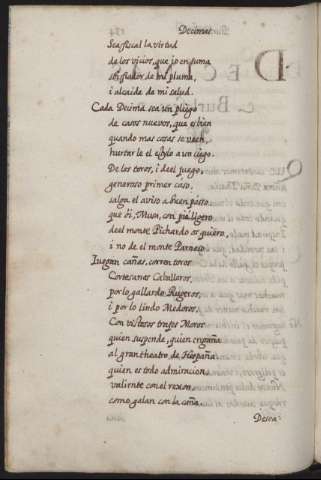 Decimas
Sea fiscal la virtud
de los vicios, que jo en suma
soi fiador de mi pluma,
i alcaide de mi salud.
Cada Decima sea un pliego
de casos nuevos, que es bien
quando mas casas se ven,
hurtarle el estylo a un ciego.
De los toros, i de el juego,
generoso primer caso,
salga el aviso a buen passo,
que oi, Musa, con pie ligero
de el monte Pichardo os quiero,
i no de el monte Parnaso
Iuegan cañas, corren toros
Cortesanos Caballeros,
por lo gallardo Rugeros,
i por lo lindo Medoros,
Con vistosos trages Moros
quien suspende, quien engaña
al gran theatro de España
quien es todo admiracion,
valiente con el rexon,
como galan con la caña.
Desea
D E C
Burl